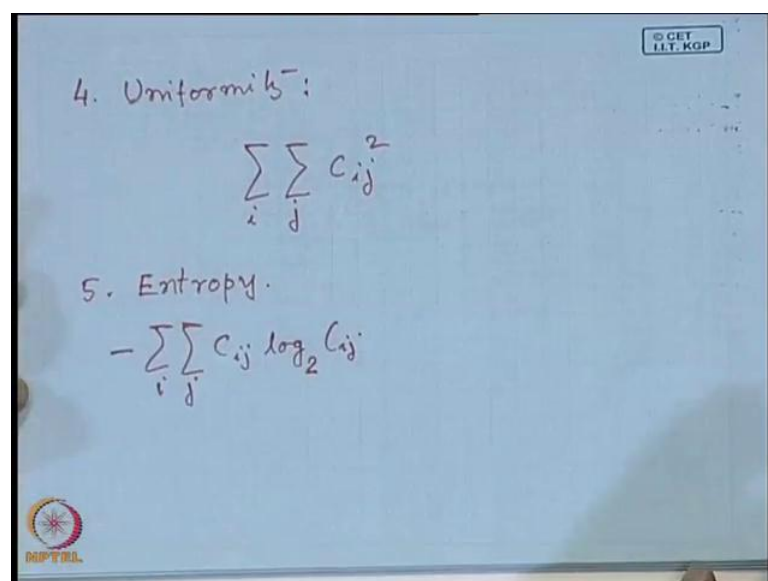 © CET
I.I.T. KGP
4. Uniformity:
∑_i ∑_j C_ij^2
5. Entropy.
- ∑_i ∑_j C_ij log_2 C_ij
NPTEL